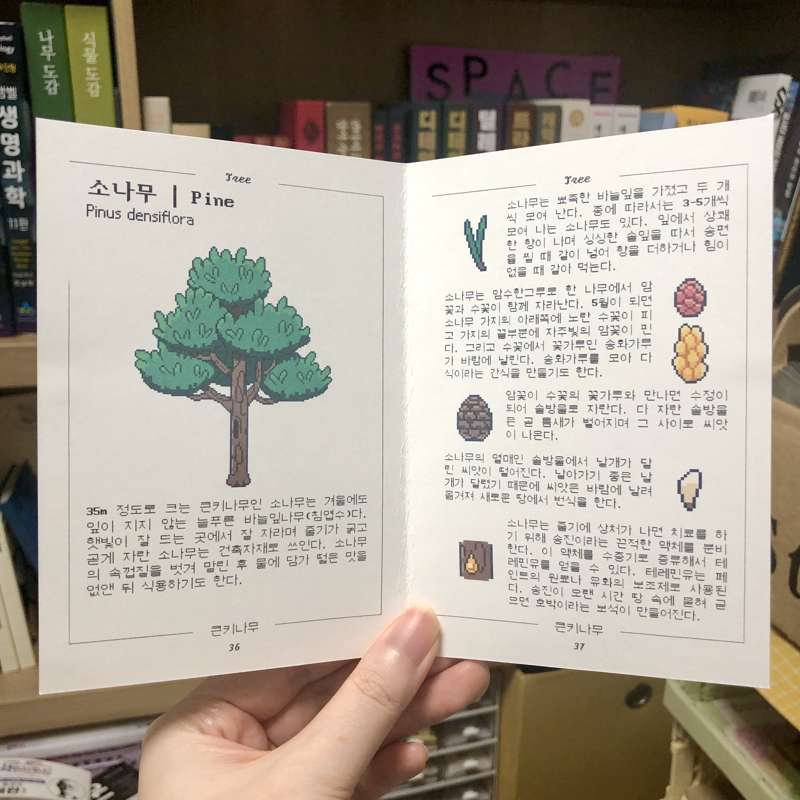 나무도감
식물도감
생명과학
11판
SPACE
Tree
소나무 | Pine
Pinus densiflora
35m 정도로 크는 큰키나무인 소나무는 겨울에도
잎이 지지 않는 늘푸른 바늘잎나무(침엽수)다.
햇빛이 잘 드는 곳에서 잘 자라며 줄기가 굵고
곧게 자란 소나무는 건축자재로 쓰인다. 소나무
의 속껍질을 벗겨 말린 후 물에 담가 떫은 맛을
없앤 뒤 식용하기도 한다.
큰키나무
36
Tree
소나무는 뾰족한 바늘잎을 가졌고 두 개
씩 모여 난다. 종에 따라서는 3-5개씩
모여 나는 소나무도 있다. 잎에서 상쾌
한 향이 나며 싱싱한 솔잎을 따서 송편
을 찔 때 같이 넣어 향을 더하거나 힘이
없을 때 갈아 먹는다.
소나무는 암수한그루로 한 나무에서 암
꽃과 수꽃이 함께 자라난다. 5월이 되면
소나무 가지의 아래쪽에 노란 수꽃이 피
고 가지의 끝부분에 자주빛의 암꽃이 핀
다. 그리고 수꽃에서 꽃가루인 송화가루
가 바람에 날린다. 송화가루를 모아 다
식이라는 간식을 만들기도 한다.
암꽃이 수꽃의 꽃가루와 만나면 수정이
되어 솔방울로 자란다. 다 자란 솔방울
은 곧 틈새가 벌어지며 그 사이로 씨앗
이 나온다.
소나무의 열매인 솔방울에서 날개가 달
린 씨앗이 떨어진다. 날아가기 좋은 날
개가 달렸기 때문에 씨앗은 바람에 날려
옮겨져 새로운 땅에서 번식을 한다.
소나무는 줄기에 상처가 나면 치료를 하
기 위해 송진이라는 끈적한 액체를 분비
한다. 이 액체를 수증기로 증류해서 테
레핀유를 얻을 수 있다. 테레핀유는 페
인트의 원료나 유화의 보조제로 사용된
다. 송진이 오랜 시간 땅 속에 묻혀 굳
으면 호박이라는 보석이 만들어진다.
큰키나무
37